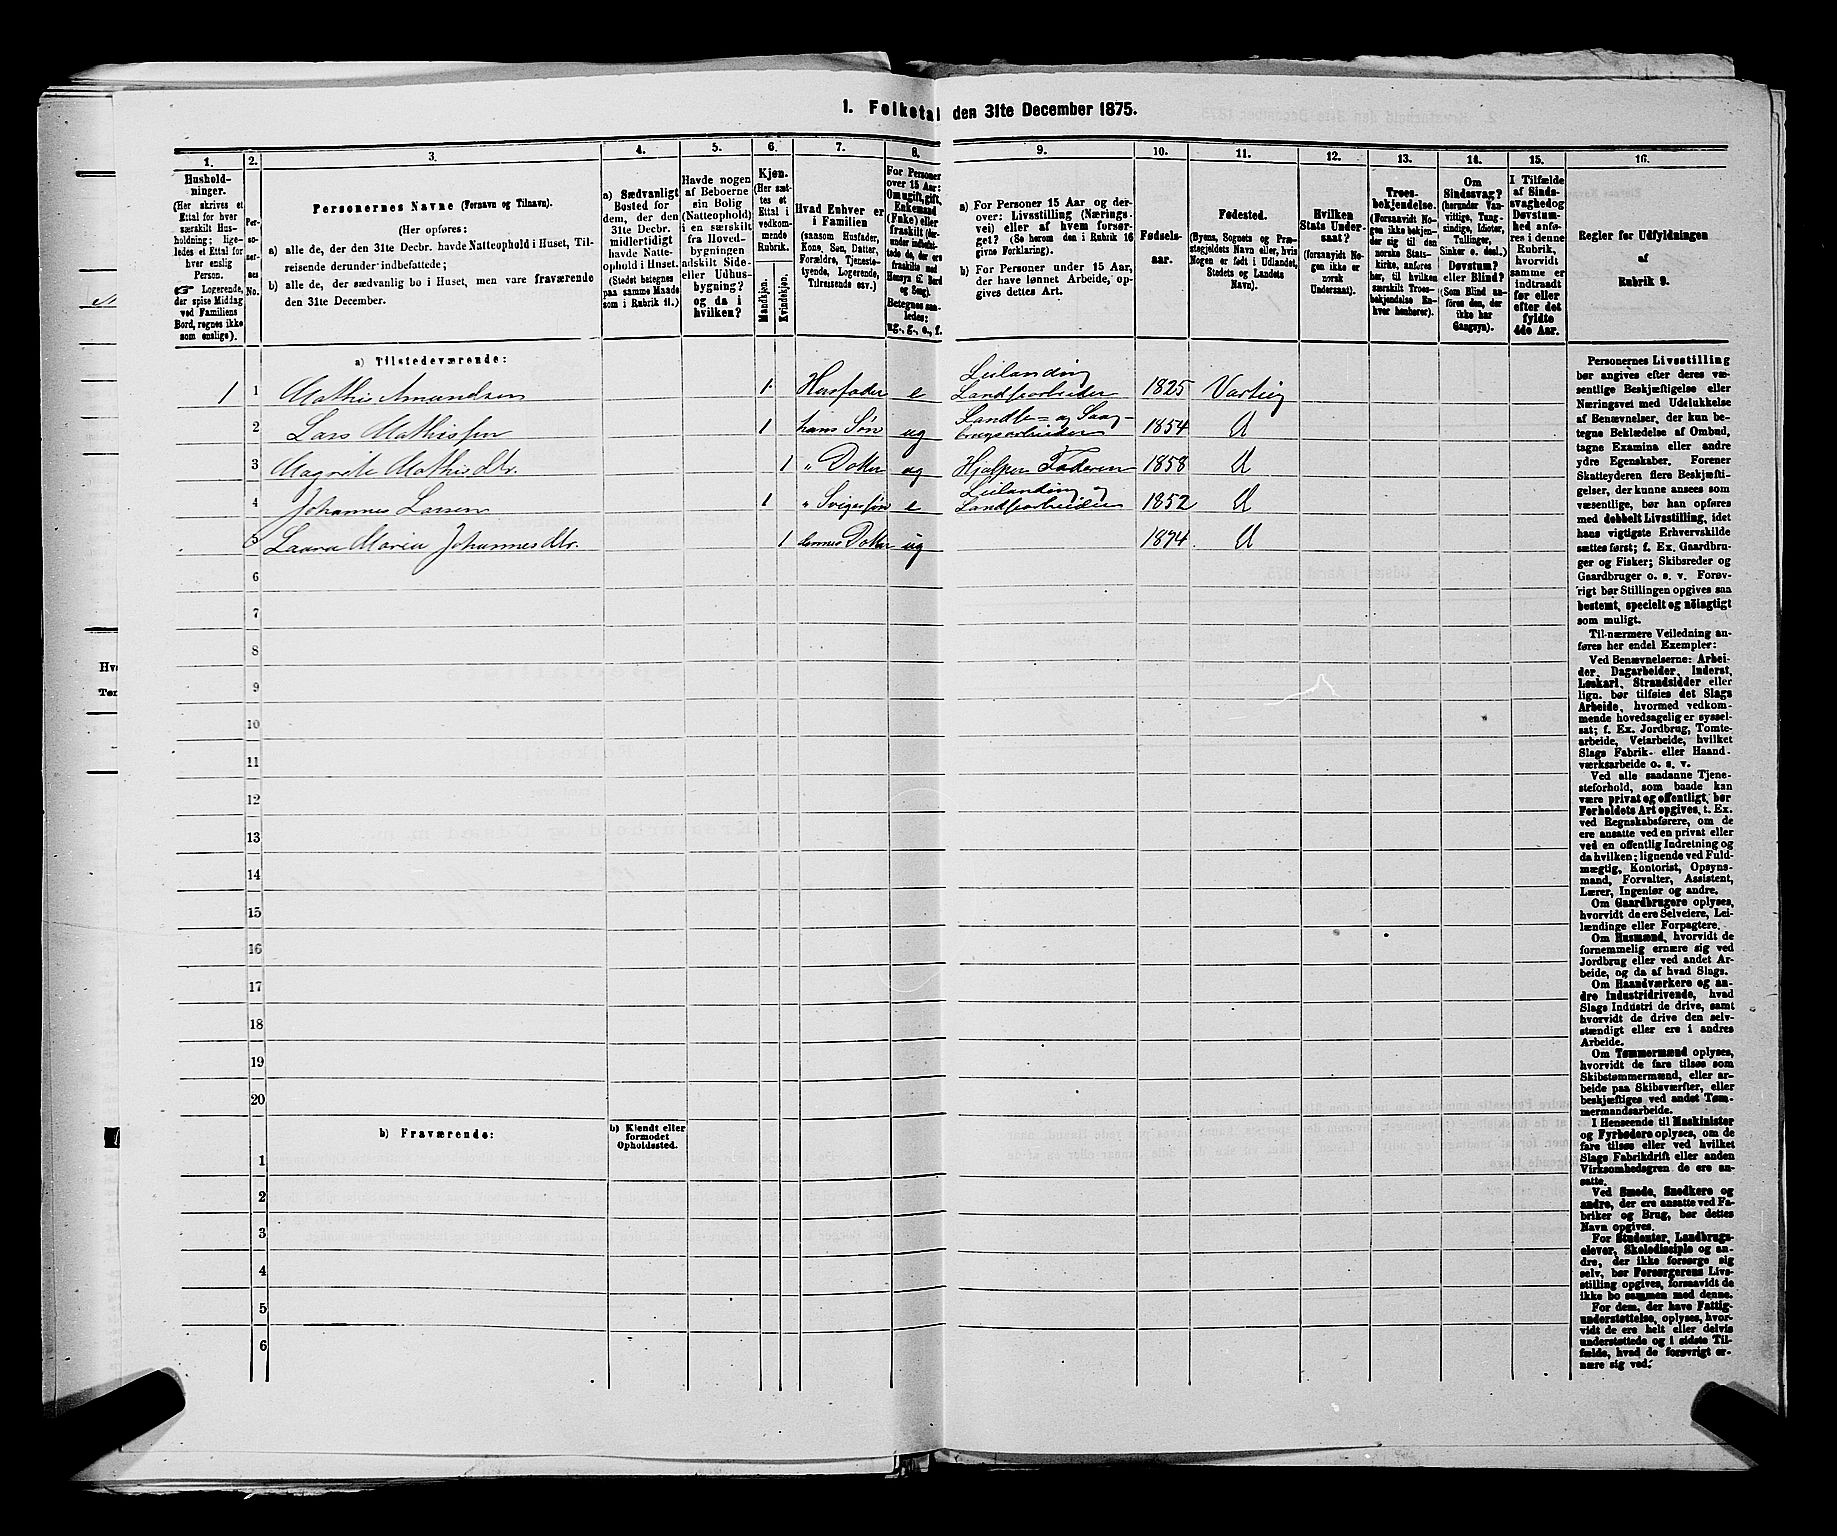 1. Folketal den 31te December 1875.
1.
2.
3.
4.
5.
6.
7.
8.
9.
10.
11.
12.
13.
14.
15.
16.
Hushold-
ninger.
(Her skrives et
Ettal for hver
særskilt Hus-
holdning; lige-
ledes et Ettal for
hver enslig
Person.
☞ Logerende,
der spise Middag
ved Familiens
Bord, regnes ikke
som enslige).
Per-
so-
ner-
nes
No.
Personernes Navne (Fornavn og Tilnavn).
(Her opføres:
a) alle de, der den 31te Decbr. havde Natteophold i Huset, Til-
reisende derunder indbefattede;
b) alle de, der sædvanlig bo i Huset, men vare fraværende
den 31te December.
a) Sædvanligt
Bosted for
dem, der den
31te Decbr.
midlertidigt
havde Natte-
ophold i Huset.
(Stedet betegnes
paa samme Maade
som i Rubrik 11.)
Havde nogen
af Beboerne
sin Bolig
(Natteophold)
i en særskilt
fra Hoved-
bygningen
adskilt Side-
eller Udhus-
bygning?
og da i
hvilken?
Kjøn.
(Her sæt-
tes et
Ettal i
vedkom-
mende
Rubrik.
Mandkjøn.
Kvindekjøn.
Hvad Enhver er
i Familien
(saasom Husfader,
Kone, Søn, Datter,
Forældre, Tjeneste-
tyende, Logerende,
Tilreisende osv.)
For Personer
over 15 Aar:
Om ugift, gift,
Enkemand
(Enke) eller
fraskilt (der-
under indbefat-
tede de, der ere
fraskilte med
Hensyn til Bord
og Seng).
Betegnes saa-
ledes:
ug., g., e., f.
a) For Personer 15 Aar og der-
over: Livsstilling (Nærings-
vei) eller af hvem forsør-
get? (Se herom den i Rubrik 16
givne Forklaring).
b) For Personer under 15 Aar,
der have lønnet Arbeide, op-
gives dettes Art.
Fødsels-
aar.
Fødested.
(Byens, Sognets og Præ-
stegjeldets Navn eller, hvis
Nogen er født i Udlandet,
Stedets og Landets
Navn).
Hvilken
Stats Under-
saat?
(forsaavidt No-
gen ikke er
norsk
Undersaat).
Troes-
bekjendelse.
(Forsaavidt No-
gen ikke bekjen-
der sig til den
norske Stats-
kirke, anføres
her, til hvilken
særskilt Troes-
bekjendelse En-
hver henhører).
Om
Sindssvag?
(herunder Van-
vittige, Tung-
sindige, Idioter,
Tullinger,
Sinker o. desl.).
Døvstum?
eller Blind?
(Som Blind an-
føres den, der
ikke har
Gangsyn).
I Tilfælde
af Sinds-
svaghed og
Døvstum-
hed anfø-
res i denne
Rubrik,
hvorvidt
samme er
indtraadt
før eller
efter det
fyldte
4de Aar.
Regler for Udfyldningen
af
Rubrik 9.
a) Tilstedeværende:
1 1 Mathis Amundsen 1 Husfader e Leilænding Landsarbeider 1825 Varteig
2 Lars Mathissen 1 hans Søn ug 1854 d
3 Magrete Mathisdtr. 1 „ Datter ug Hjælper Faderen 1858 d
4 Johannes Larsen 1 „ Svigersøn e 1852 d
5 Laura Maria Johannesdtr. 1 dennes Datter ug 1874 d
6
7
8
9
10
11
12
13
14
15
16
17
18
19
20
b) Fraværende:
b) Kjendt eller
formodet
Opholdssted.
1
2
3
4
5
6
Personernes Livsstilling
bør angives efter deres væ-
sentlige Beskjæftigelse eller
Næringsvei med Udelukkelse
af Benævnelser, der kun be-
tegne Beklædelse af Ombud,
tagne Examina eller andre
ydre Egenskaber. Forener
Skatteyderen flere Beskjæfti-
gelser, der kunne ansees som
væsentlige, bør han opføres
med dobbelt Livsstilling, idet
hans vigtigste Erhvervskilde
sættes først; f. Ex. Gaardbru-
ger og Fisker; Skibsreder og
Gaardbruger o. s. v. Forøv-
rigt bør Stillingen opgives saa
bestemt, specielt og nöiagtigt
som muligt.
Til nærmere Veiledning an-
føres her endel Exempler:
Ved Benævnelserne: Arbei-
der, Dagarbeider, Inderst,
Løskarl, Strandsidder eller
lign. bør tilføies det Slags
Arbeide, hvormed vedkom-
mende hovedsagelig er syssel-
sat; f. Ex. Jordbrug, Tomte-
arbeide, Veiarbeide, hvilket
Slags Fabrik- eller Haand-
værksarbeide o. s. v.
Ved alle saadanne Tjene-
steforhold, som baade kan
være privat og offentligt, bør
Forholdets Art opgives, t. Ex.
ved Regnskabsførere, om de
ere ansatte ved en privat eller
ved en offentlig Indretning og
da hvilken; lignende ved Fuld-
mægtig, Kontorist, Opsyns-
mand, Forvalter, Assistent,
Lærer, Ingeniør og andre.
Om Gaardbrugere oplyses,
hvorvidt de ere Selveiere, Lei-
lændinge eller Forpagtere.
Om Husmænd, hvorvidt de
fornemmelig ernære sig ved
Jordbrug eller ved andet Ar-
beide, og da af hvad Slags.
Om Haandværkere og an-
dre Industridrivende, hvad
Slags Industri de drive, samt
hvorvidt de drive den selv-
stændigt eller ere i andres
Arbeide.
Om Tømmermænd oplyses,
hvorvidt de fare tilsøs som
Skibstømmermænd, eller ar-
beide paa Skibsværfter, eller
beskjæftiges ved andet Tøm-
mermandsarbeide.
I Henseende til Maskinister
og Fyrbødere oplyses, om de
fare tilsøs eller ved hvilket
Slags Fabrikdrift eller anden
Virksomhedsgren de ere an-
satte.
Ved Smede, Snedkere og
andre, der ere ansatte ved Fa-
briker og Brug, bør dettes
Navn opgives.
For Studenter, Landbrugs-
elever, Skoledisciple og an-
dre, der ikke forsørge sig
selv, bør Forsørgerens Livs-
stilling opgives, forsaavidt de
ikke bo sammen med denne.
For dem, der have Fattig-
understøttelse, oplyses, hvor-
vidt de ere helt eller delvis
understøttede og i sidste Til-
fælde, hvad de forøvrigt er-
nære sig ved.